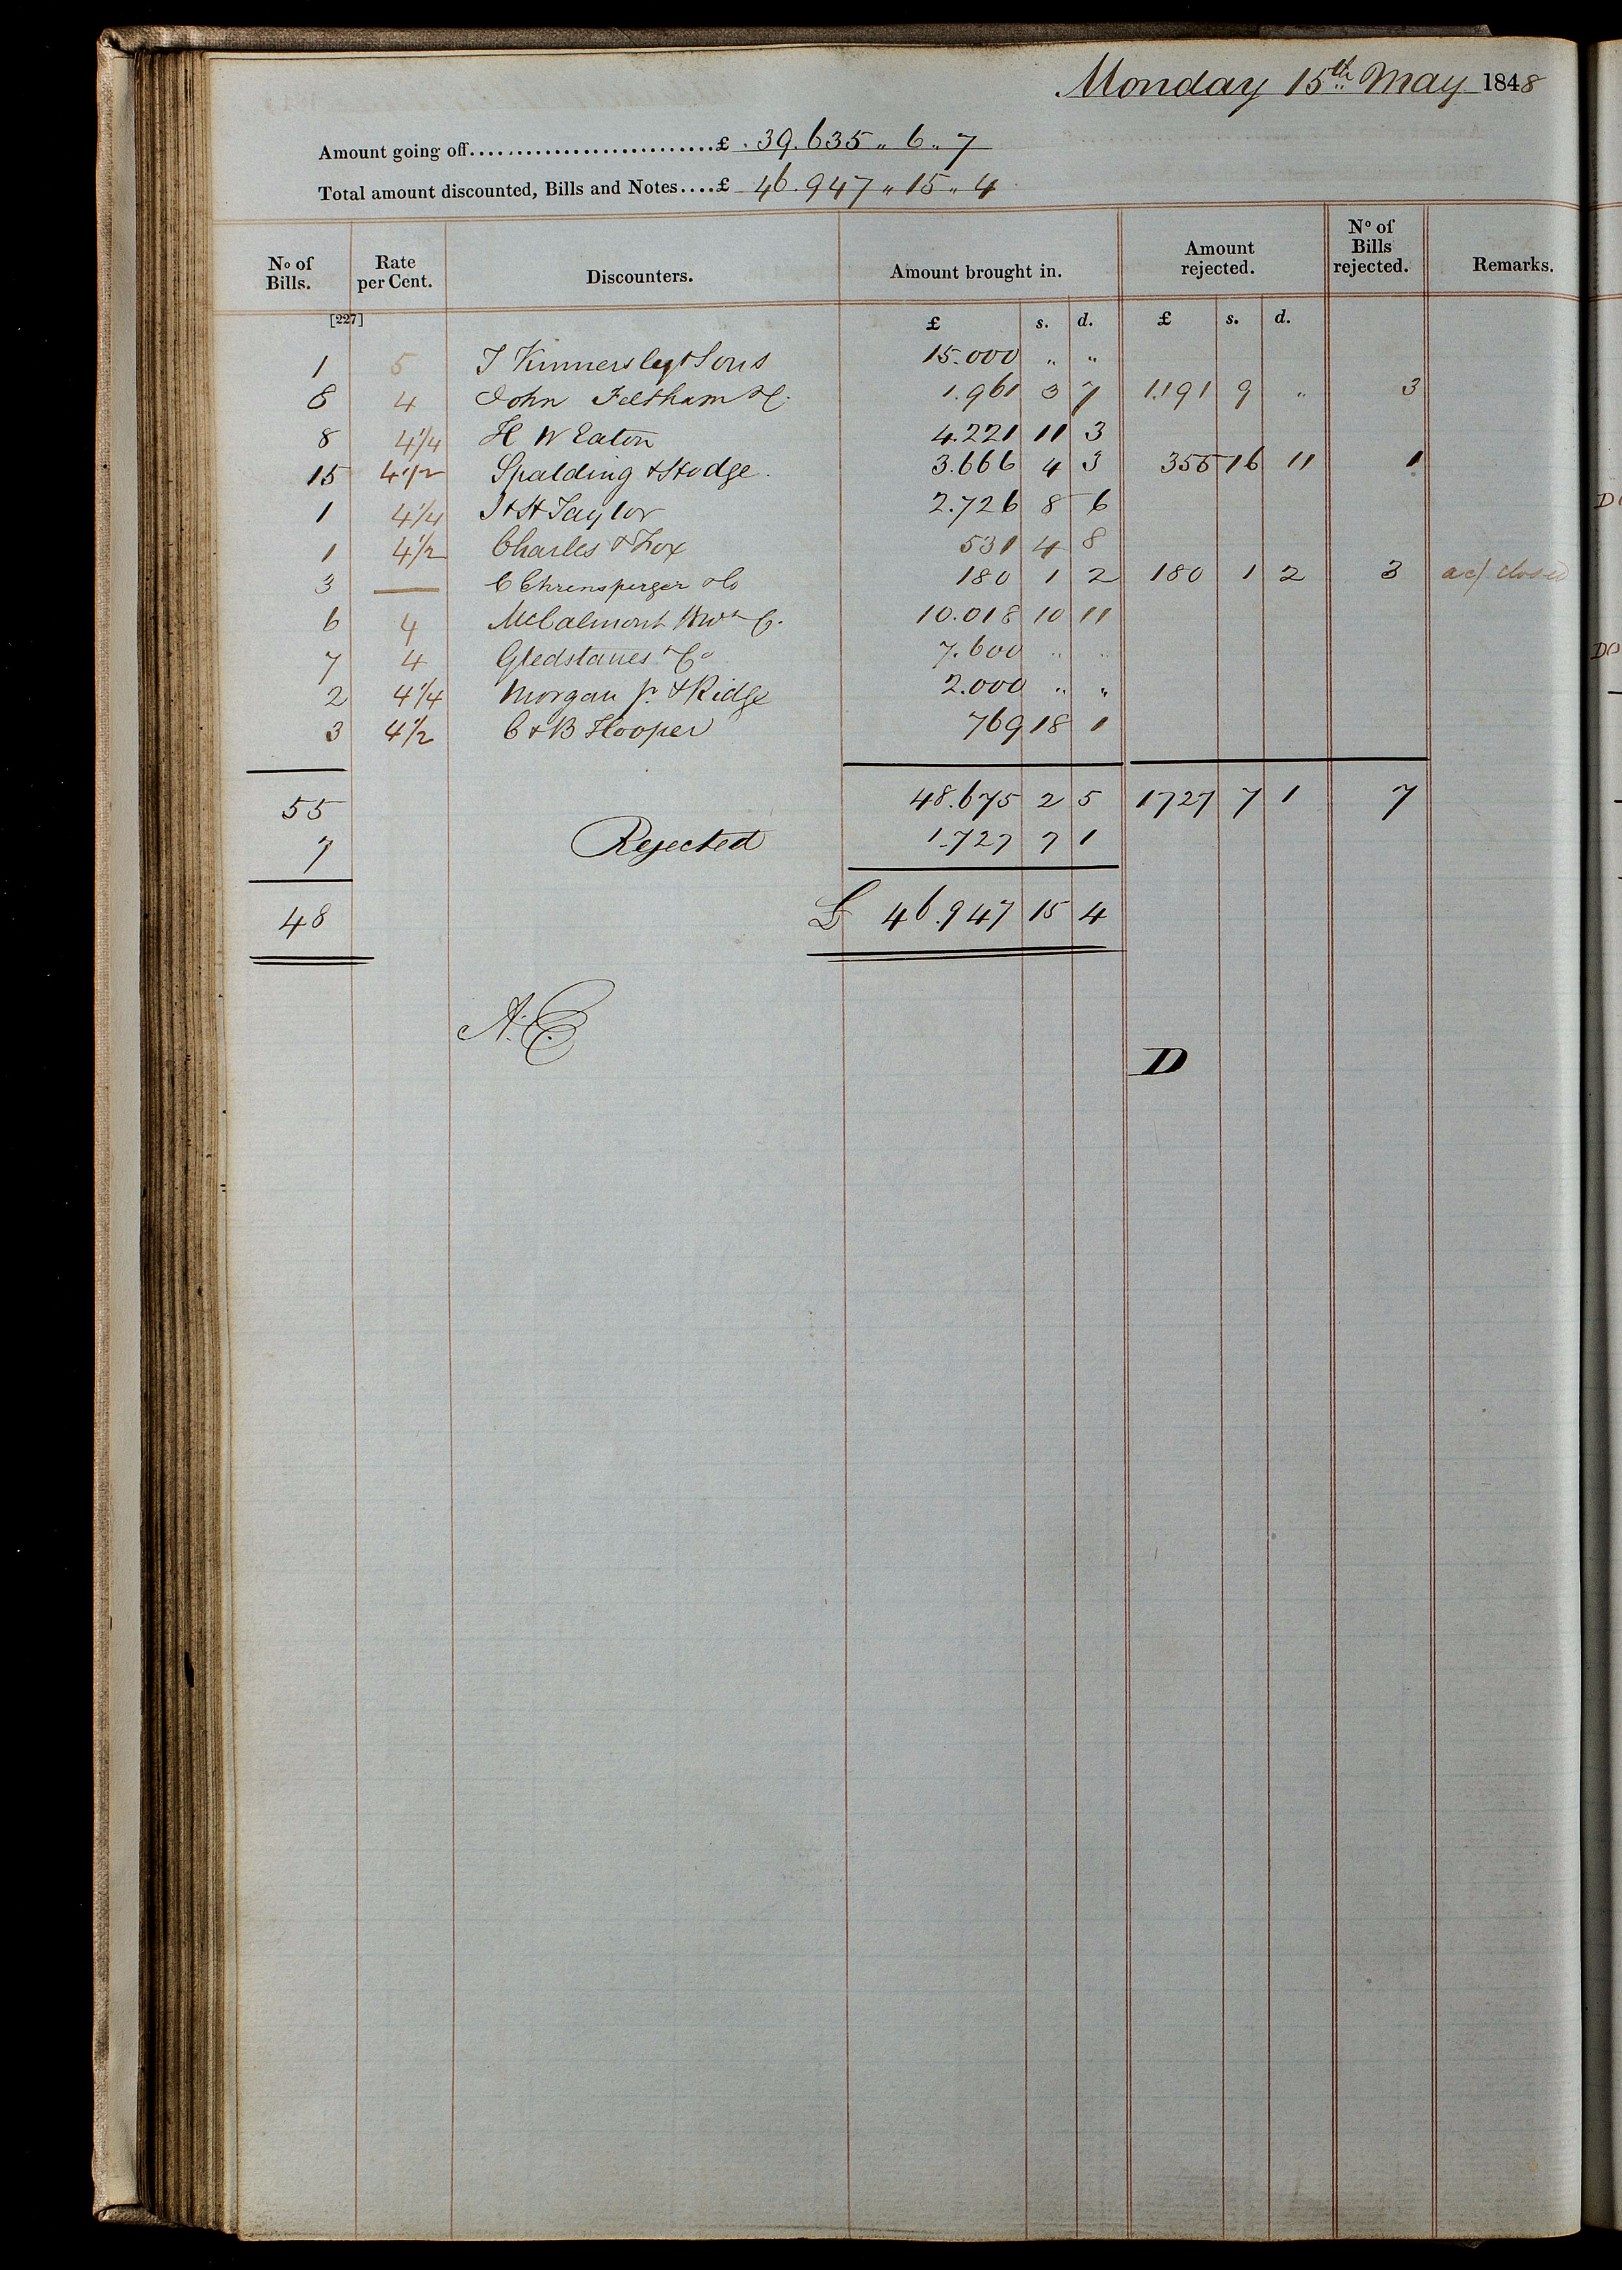 Monday 15th May 1848
Amount going off...........................£ 39.635 " 6 " 7
Total amount discounted, Bills and Notes....£ 46.947 " 15 " 4
No of Bills. Rate per Cent. Discounters. Amount brought in. Amount rejected. No of Bills rejected. Remarks.
[227] £ s. d. £ s. d.
1 5 T Kinnersley & Sons 15.000 " "
8 4 John Feltham & C. 1.961 3 7 1.191 9 " 3
8 4 1/4 H W Eaton 4.221 11 3
15 4 1/2 Spalding & Hodge. 3.666 4 3 355 16 11 1
1 4 1/4 J & H Taylor 2.726 8 6
1 4 1/2 Charles & Fox 531 4 8
3 — C Ehrensperger & Co 180 1 2 180 1 2 3 ac/ closed
6 4 McCalmont 10.018 10 11
7 4 Gledstanes & Co 7.600 " "
2 4 1/4 Morgan Jr. & Ridge 2.000 " "
3 4 1/2 C & B Hooper 769 18 1
55 48.675 2 5 1727 7 1 7
7 Rejected 1.727 7 1
48 £ 46.947 15 4
A.C.
D